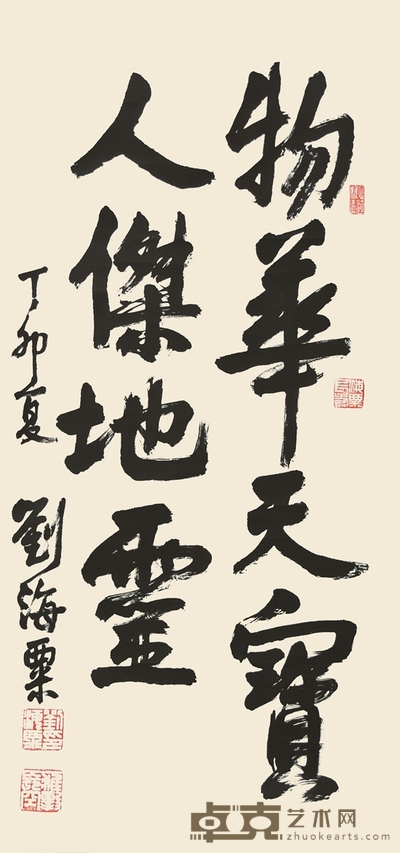 物華天寶
人傑地靈
丁卯夏
劉海粟
卓克艺术网
zhuokearts.com